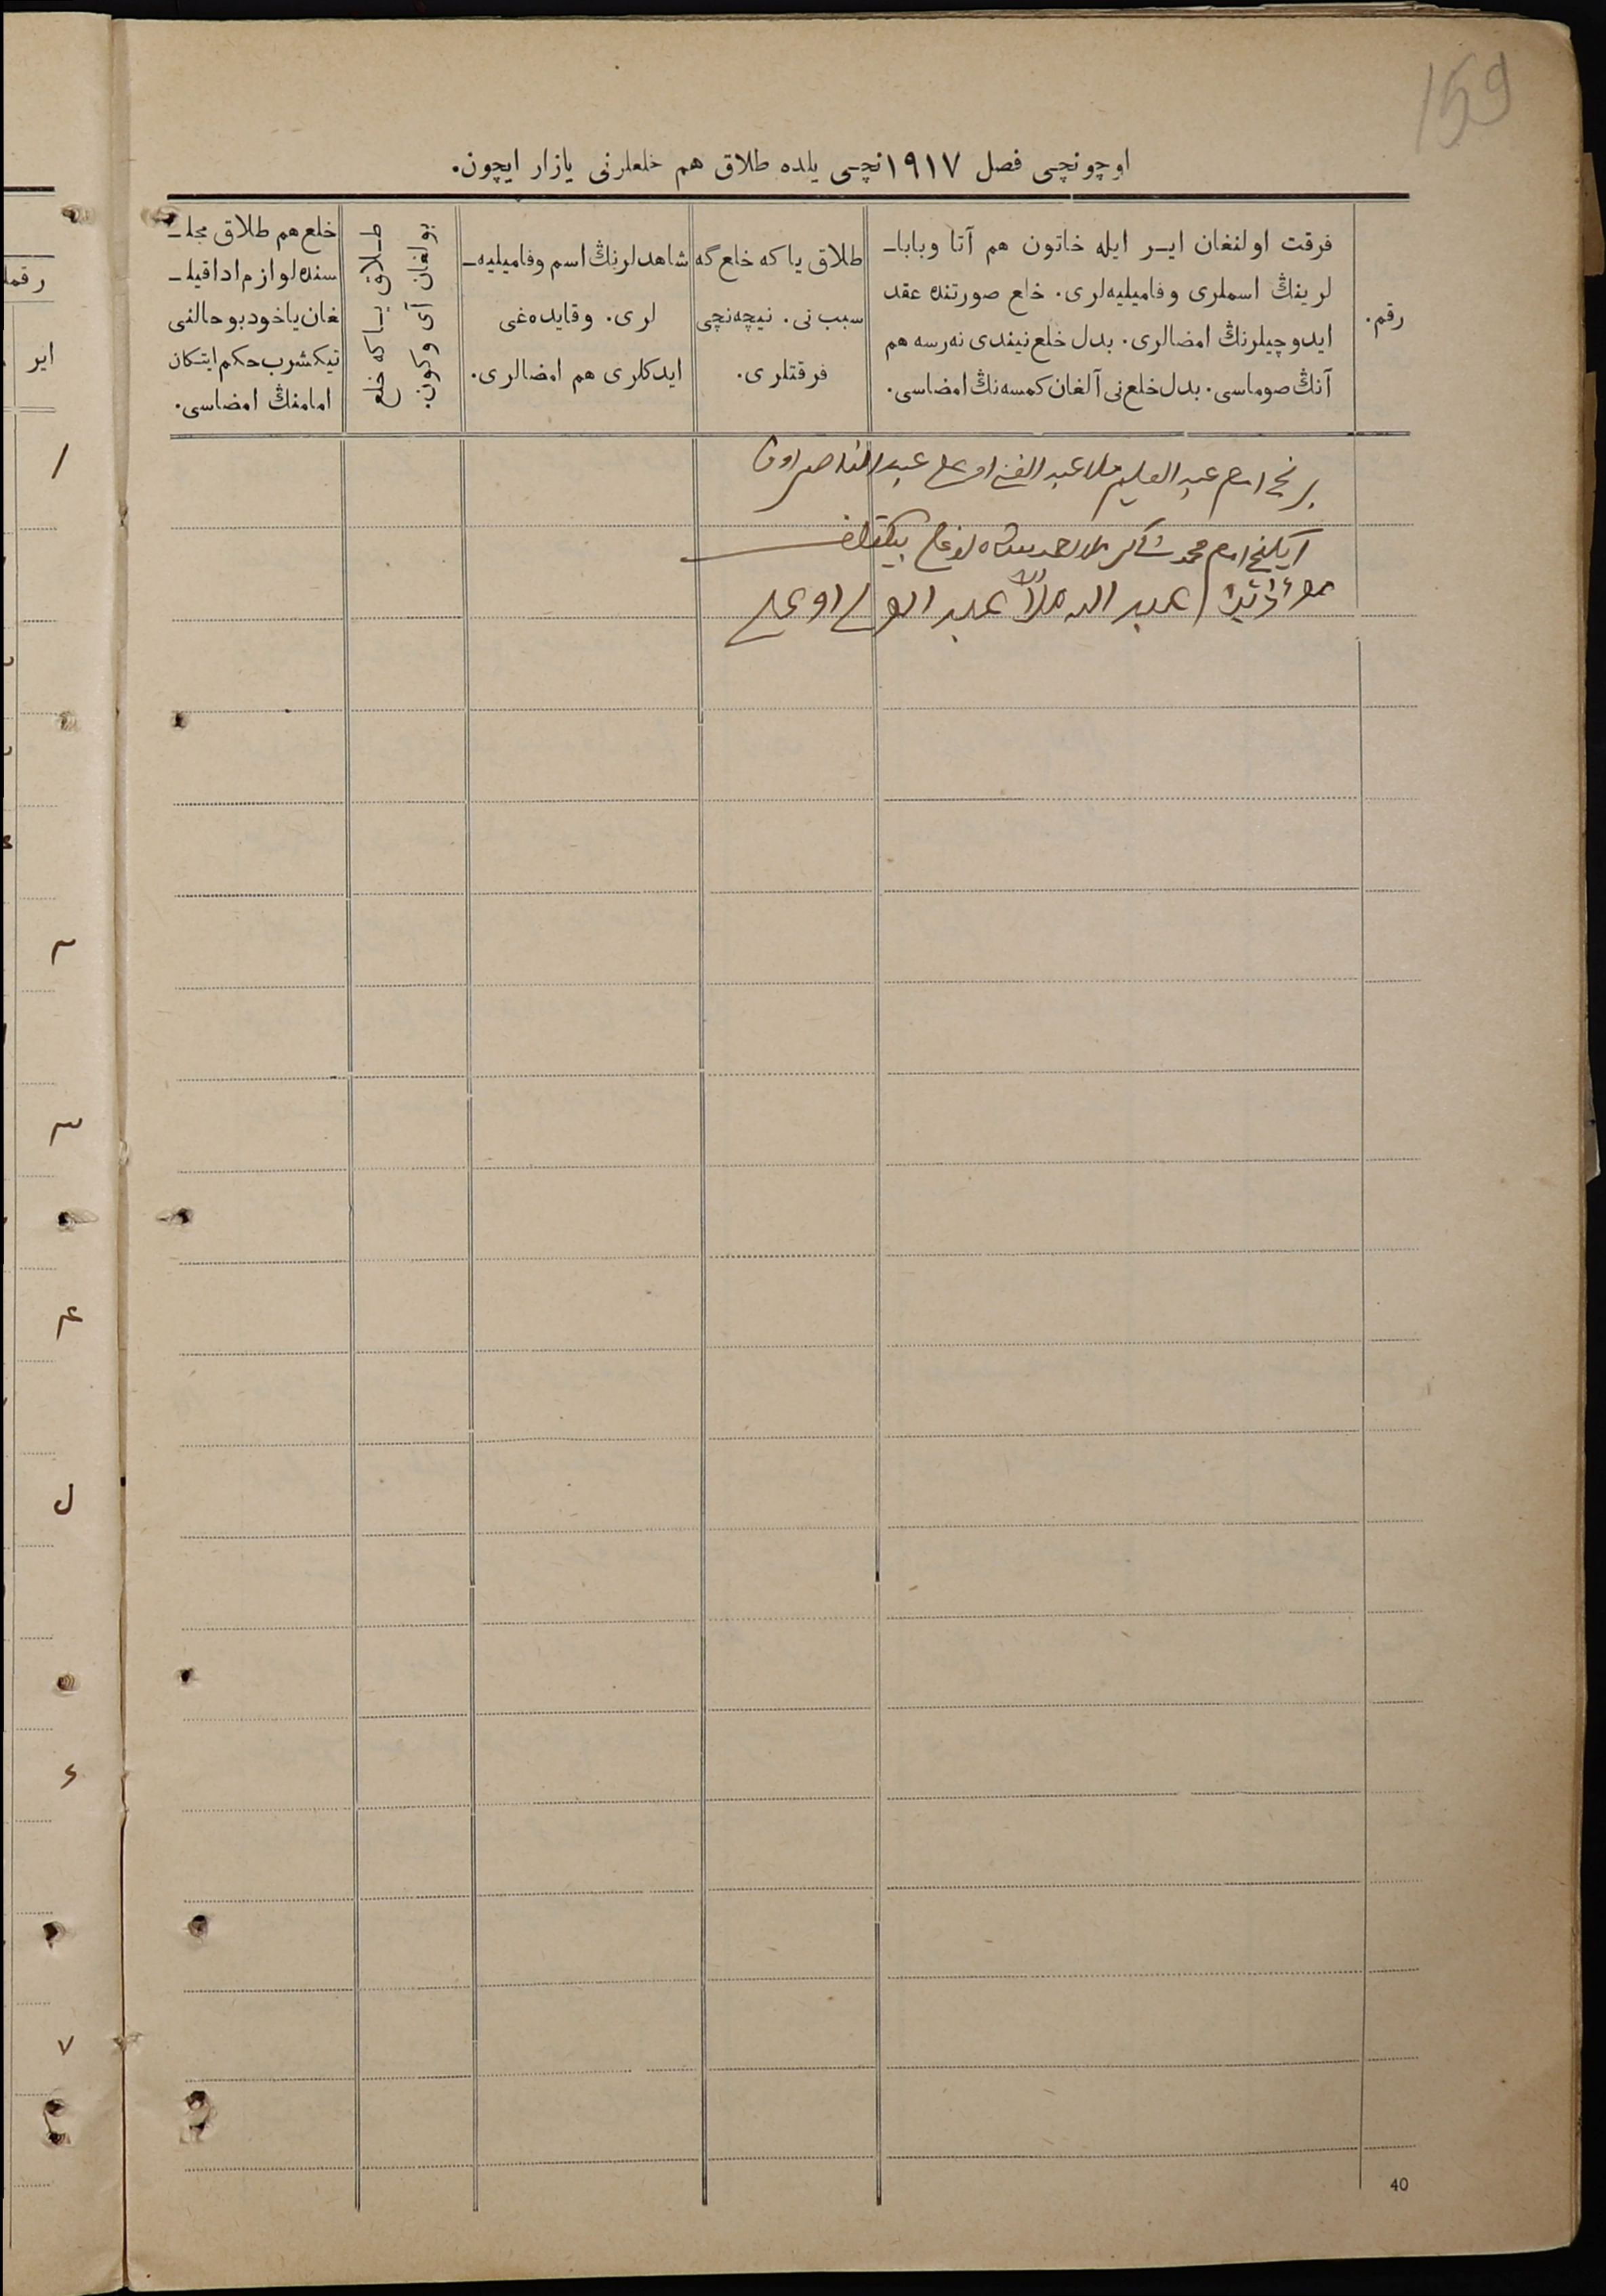 159
اوچونچی فصل ١٩١٧نچی یلده طلاق هم خلعلرنی یازار ایچون.
رقم.
فرقت اولنغان ایـر ایله خاتون هم آتا وبابا‌ـ
لرینڭ اسملری وفامیلیه‌لری. خلع صورتنده عقد
ایدوچیلرنڭ امضالری. بدل خلع نیندی نه‌رسه هم
آنڭ صوماسی. بدل خلع نی آلغان کمسه‌نڭ امضاسی.
طلاق یا که خلع گه
سبب نی. نیچه‌نچی
فرقتلری.
شاهدلرنڭ اسم وفامیلیه‌ـ
لری. وقایده‌غی
ایدکلری هم امضالری.
طـلاق یـا که خلع
بولغان آی وکون.
خلع هم طلاق مجلـ
سنده لوازم ادا قیلـ
غان یاخود بو حالنی
تیکشرب حکم ایتکان
امامنڭ امضاسی.
برنچی امام عبد العلیم ملا عبد الغنی اوغلی عبد الناصروف
ایکنچی امام محمد شاکر ملا احمدشاه اوغلی
عبد الله ملا عبد الولی اوغلی
40
رقم
ایر
١
٢
٣
۴
۵
۶
٧